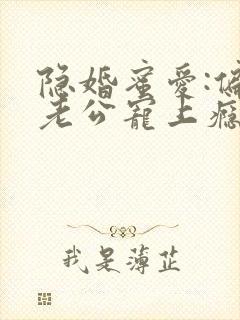 隐婚蜜爱:偏
老公寵上瘾
我是薄芷